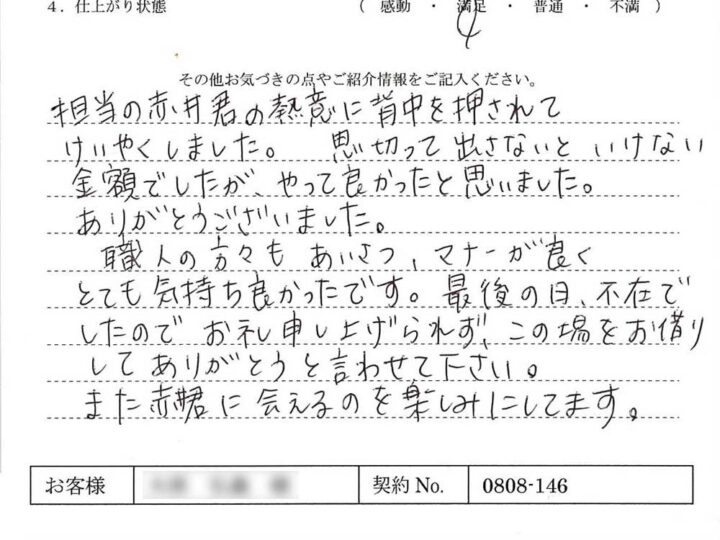 4．仕上がり状態 （ 感動 ・ 満足 ・ 普通 ・ 不満 ）
その他お気づきの点やご紹介情報をご記入ください。
担当の赤井君の熱意に背中を押されて
けいやくしました。 思切って出さないといけない
金額でしたが、やって良かったと思いました。
ありがとうございました。
職人の方々も あいさつ、マナーが良く
とても気持ち良かったです。最後の日、不在で
したので お礼申し上げられず、この場をお借り
してありがとうと言わせて下さい。
また赤井君に会えるのを楽しみにしてます。
お客様 契約 No. 0808-146